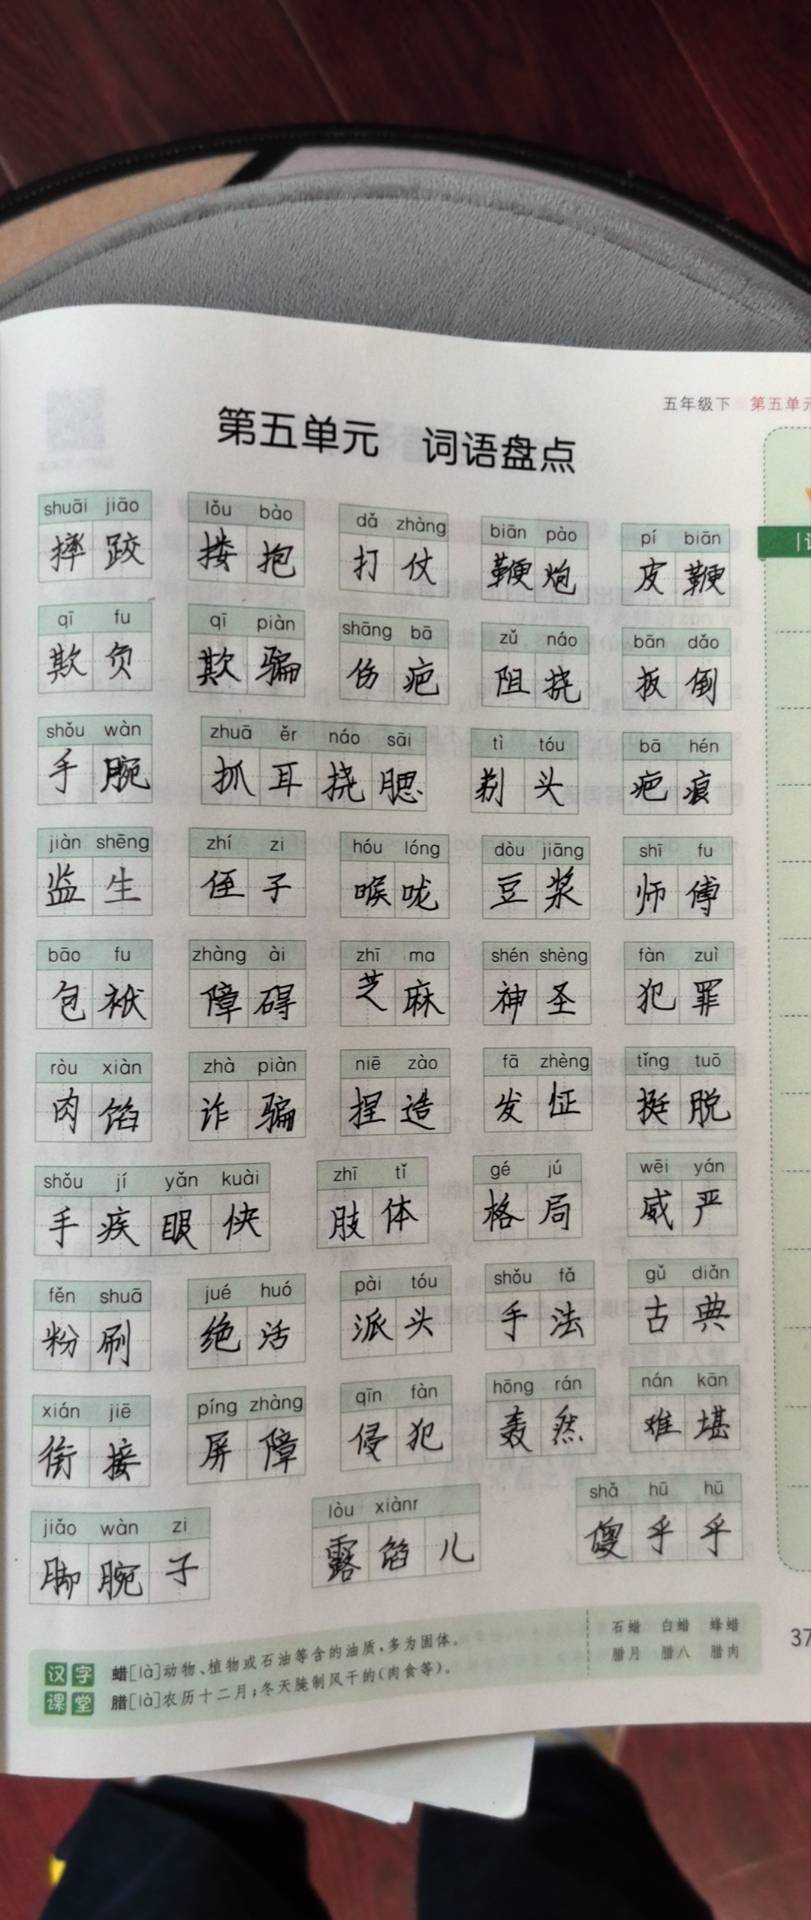 五年级下 第五单元
第五单元 词语盘点
shuāi jiāo lǒu bào dǎ zhàng biān pào pí biān
摔跤 搂抱 打仗 鞭炮 皮鞭
qī fu qī piàn shāng bā zǔ náo bān dǎo
欺负 欺骗 伤疤 阻挠 扳倒
shǒu wàn zhuā ěr náo sāi tì tóu bā hén
手腕 抓耳挠腮 剃头 疤痕
jiàn shēng zhí zi hóu lóng dòu jiāng shī fu
监生 侄子 喉咙 豆浆 师傅
bāo fu zhàng ài zhī ma shén shèng fàn zuì
包袱 障碍 芝麻 神圣 犯罪
ròu xiàn zhà piàn niē zào fā zhèng tǐng tuō
肉馅 诈骗 捏造 发怔 挺脱
shǒu jí yǎn kuài zhī tǐ gé jú wēi yán
手疾眼快 肢体 格局 威严
fěn shuā jué huó pài tóu shǒu fǎ gǔ diǎn
粉刷 绝活 派头 手法 古典
xián jiē píng zhàng qīn fàn hōng rán nán kān
衔接 屏障 侵犯 轰然 难堪
jiǎo wàn zi lòu xiànr shǎ hū hū
脚腕子 露馅儿 傻乎乎
汉字课堂
蜡[là]动物、植物或石油等含的油质,多为固体。 石蜡 白蜡 蜂蜡
腊[là]农历十二月;冬天腌制风干的(肉食等)。 腊月 腊八 腊肉
37